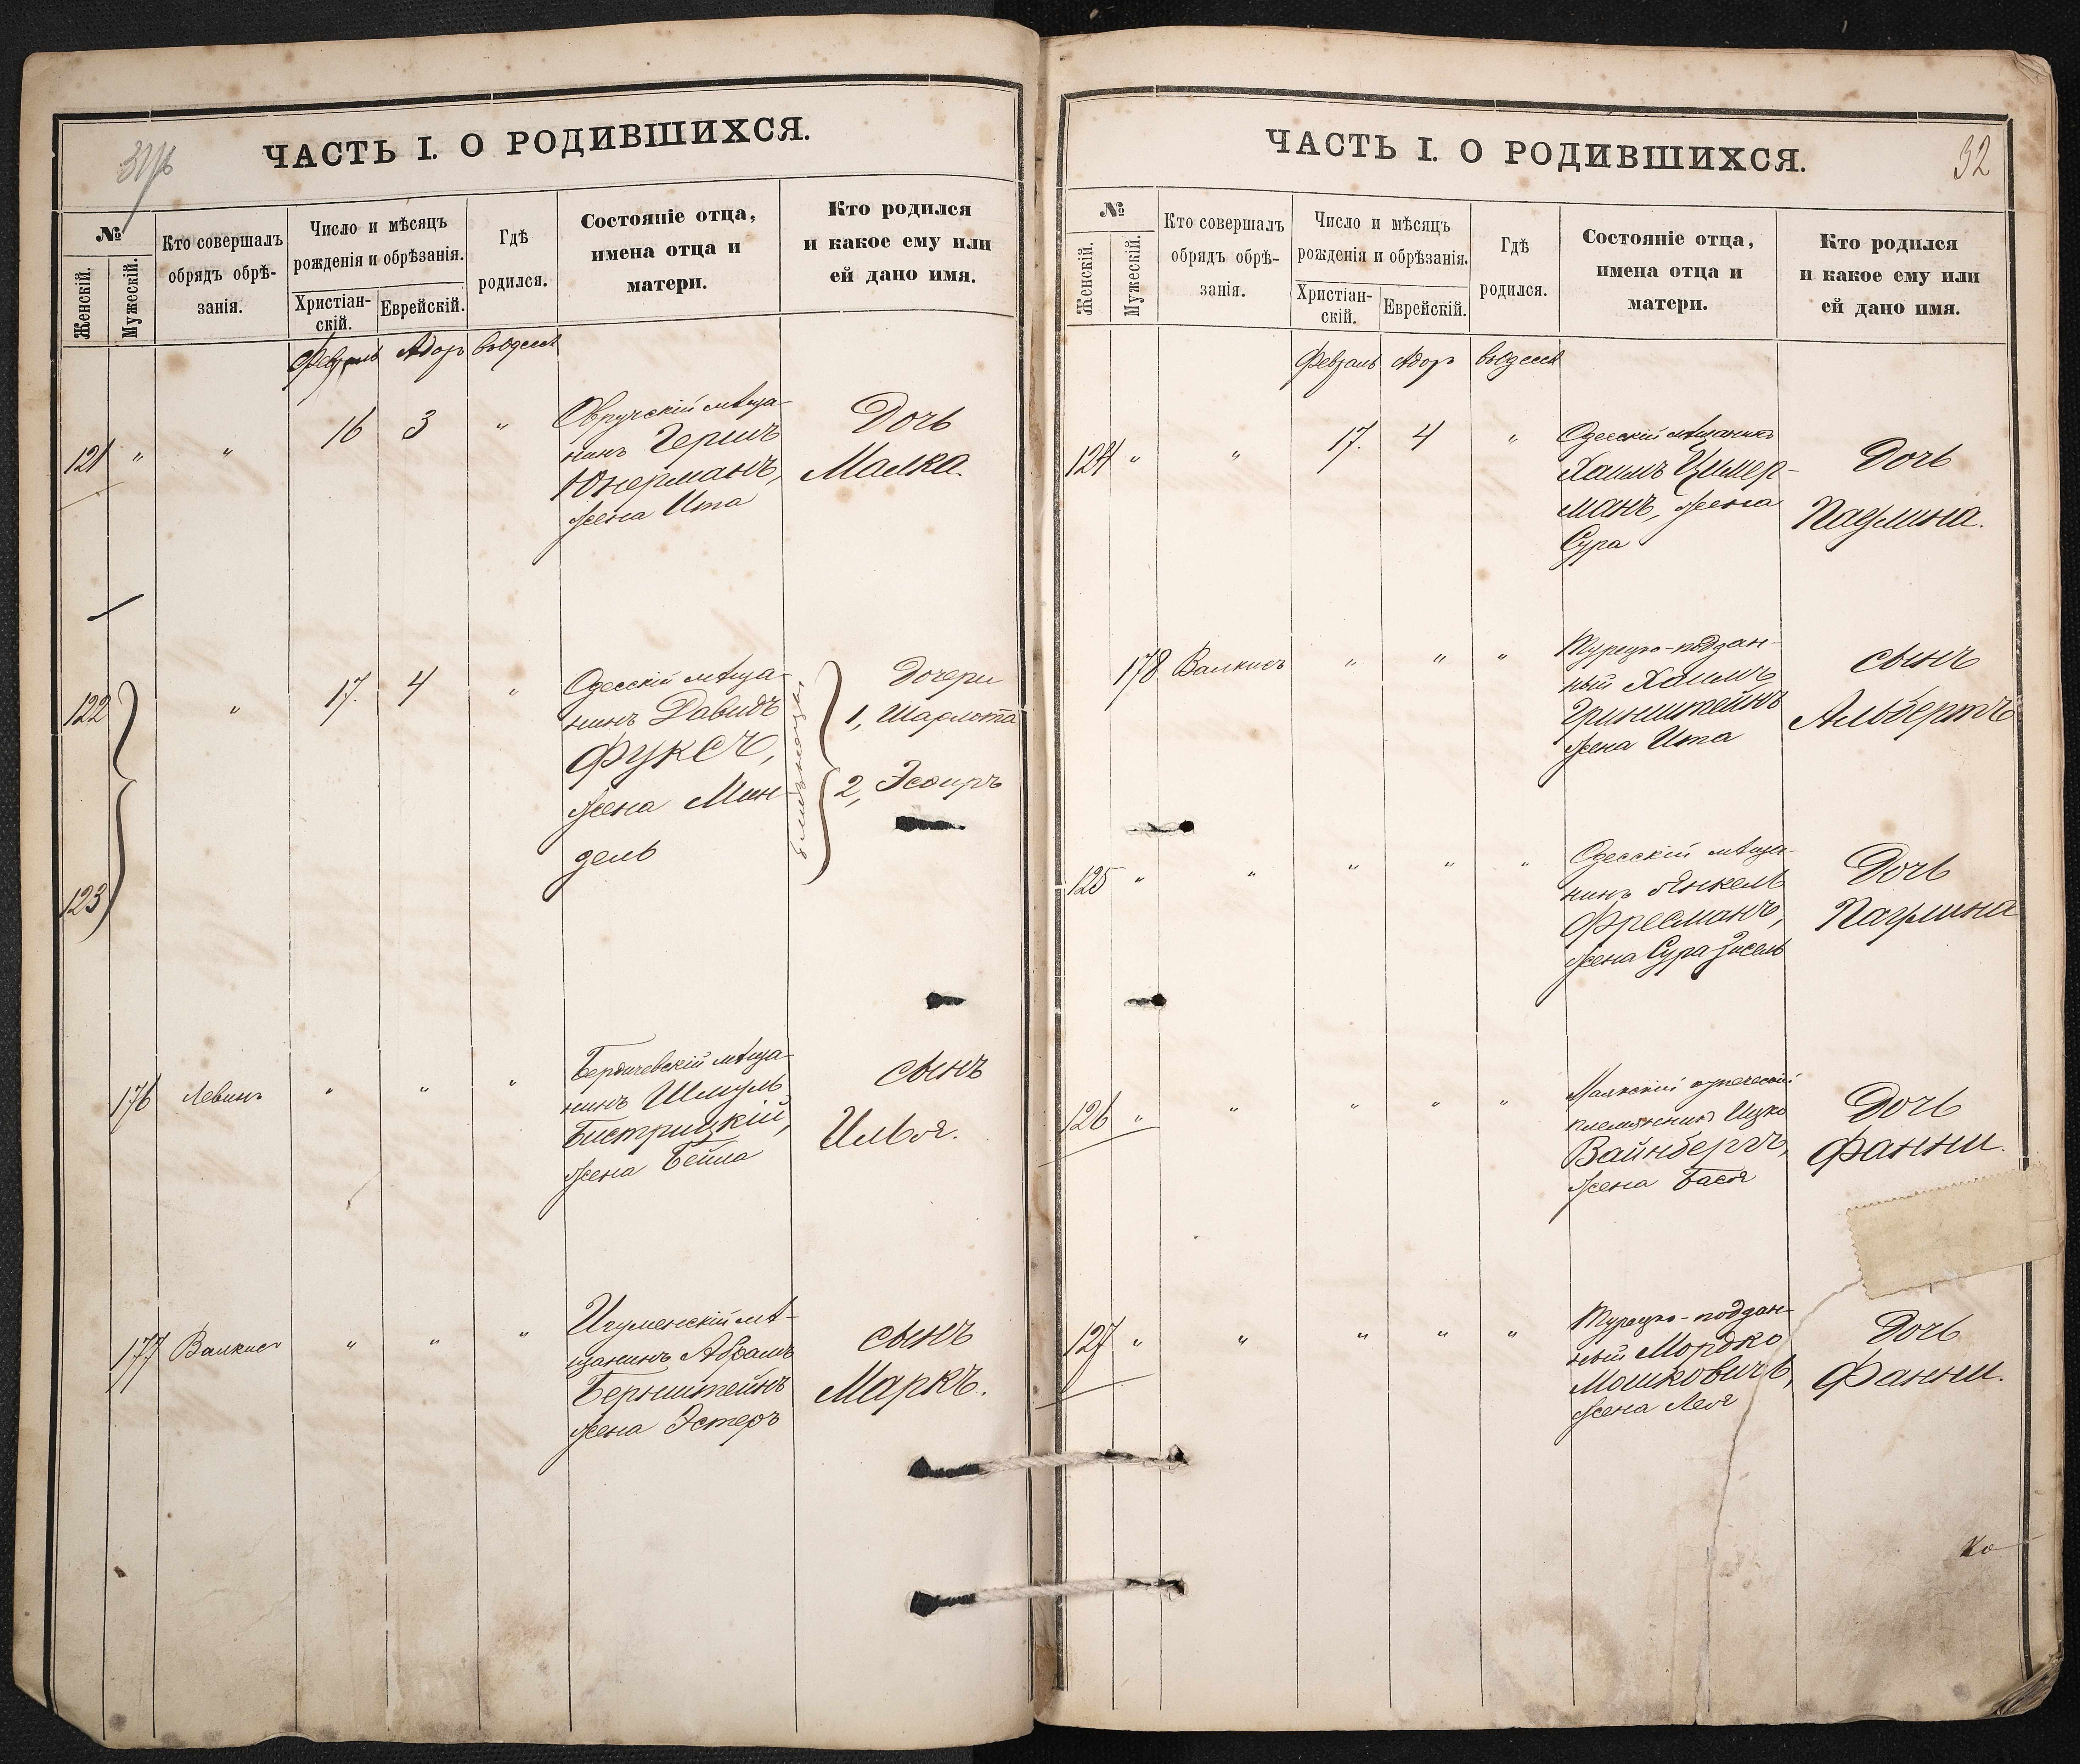 ЧАСТЬ I. О РОДИВШИХСЯ.
№
Женскій.
Мужескій.
Кто совершалъ
обрядъ обрѣ-
занія.
Число и мѣсяцъ
рожденія и обрѣзанія.
Христіан-
скій.
Еврейскій.
Гдѣ
родился.
Состояніе отца,
имена отца и
матери.
Кто родился
и какое ему или
ей дано имя.
Февраль Адаръ въ Одессѣ
121 " " 16 3 "
Овручскій мѣща-
нинъ Гершъ
Юнерманъ,
жена Ита
Дочь
Малка.
122 " 17. 4 "
123
Одесскій мѣща-
нинъ Давидъ
Фуксъ,
жена Мин
дель
близнецы
Дочери
1, Шарлота
2, Эсѳирь
176 Левинъ " " "
Бердичевскій мѣща-
нинъ Шмуль
Бистрицкій,
жена Бейла
сынъ
Илья.
177 Валкисъ " " "
Игуменскій мѣ-
щанинъ Абрамъ
Бернштейнъ
жена Эстеръ
сынъ
Маркъ.
ЧАСТЬ I. О РОДИВШИХСЯ.
32
№
Женскій.
Мужескій.
Кто совершалъ
обрядъ обрѣ-
занія.
Число и мѣсяцъ
рожденія и обрѣзанія.
Христіан-
скій.
Еврейскій.
Гдѣ
родился.
Состояніе отца,
имена отца и
матери.
Кто родился
и какое ему или
ей дано имя.
Февраль Адаръ въ Одессѣ
124 " " 17. 4 "
Одесскій мѣщанинъ
Хаимъ Цимер-
манъ, жена
Сура
Дочь
Паулина.
178 Валкисъ " " "
Турецко-поддан-
ный Хаимъ
Гринштейнъ
жена Ита
сынъ
Альбертъ
125 " " " " "
Одесскій мѣща-
нинъ Янкель
Фресманъ,
жена Сура Зисель
Дочь
Паулина
126 " " " " "
Маякскій купеческій
племянникъ Ицко
Вайнбергъ,
жена Бася
Дочь
Фанни.
127 " " " " "
Турецко-поддан-
ный Мордко
Мошковичъ,
жена Лея
Дочь
Фанни.